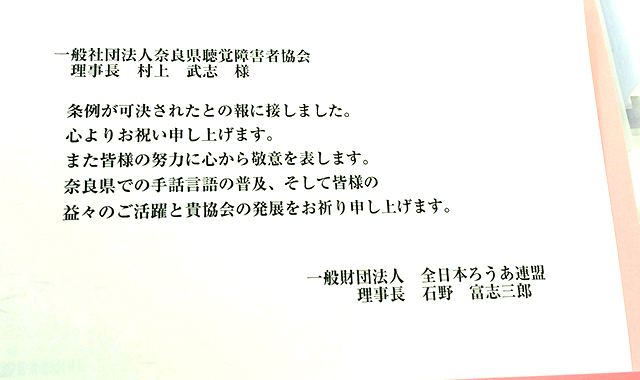 一般社団法人奈良県聴覚障害者協会
理事長　村上　武志　様
条例が可決されたとの報に接しました。
心よりお祝い申し上げます。
また皆様の努力に心から敬意を表します。
奈良県での手話言語の普及、そして皆様の
益々のご活躍と貴協会の発展をお祈り申し上げます。
一般財団法人　全日本ろうあ連盟
理事長　石野　富志三郎